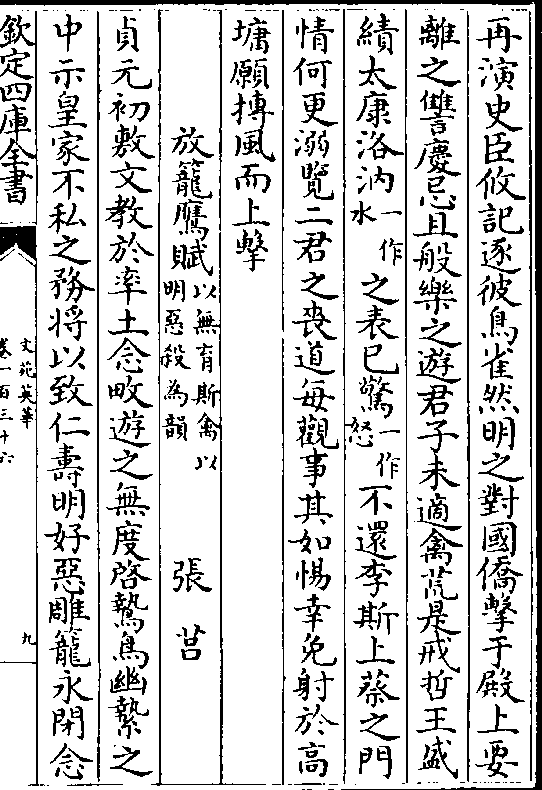 再演史臣攸記逐彼鳥雀然明之對國僑擊于殿上要
離之讐慶忌且般樂之遊君子未適禽荒是戒哲王盛
績太康洛汭一作水之表已驚一作怒不還李斯上蔡之門
情何更溺覽二君之喪道每觀事其如惕幸免射於高
墉願摶風而上擊
放籠鷹賦以無育斯禽以明惡殺為韻　張莒
貞元初敷文教於率土念畋遊之無度啓鷙鳥幽縶之
中示皇家不私之務將以致仁壽明好惡雕籠永閉念
欽定四庫全書
文苑英華
卷一百三十六
九